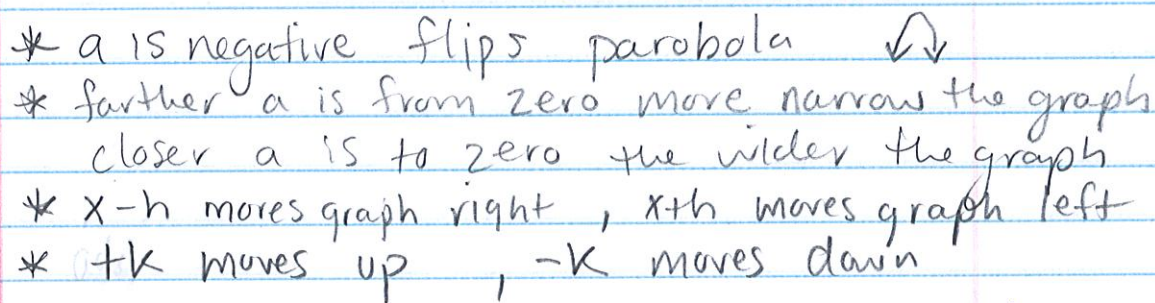 * a is negative flips parobola
* farther a is from zero more narrow the graph
closer a is to zero the wider the graph
* x-h moves graph right, x+h moves graph left
* +k moves up, -k moves down